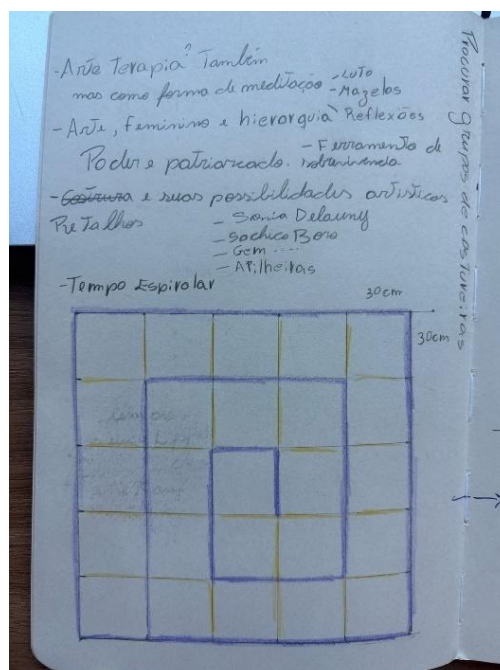 -Arte terapia? Também
mas como forma de meditação
- Luto
- Mazelas
Reflexões
- Arte, feminino e hierarquia
Poder e patriarcado.
- Ferramenta de
sobrevivencia
- Costura e suas possibilidades artísticas
Retalhos
- Sonia Delauny
- Sochico Boro
- Gem ....
- Arpilheiras
-Tempo Espiralar
30cm
30cm
Procurar grupos de costureiras